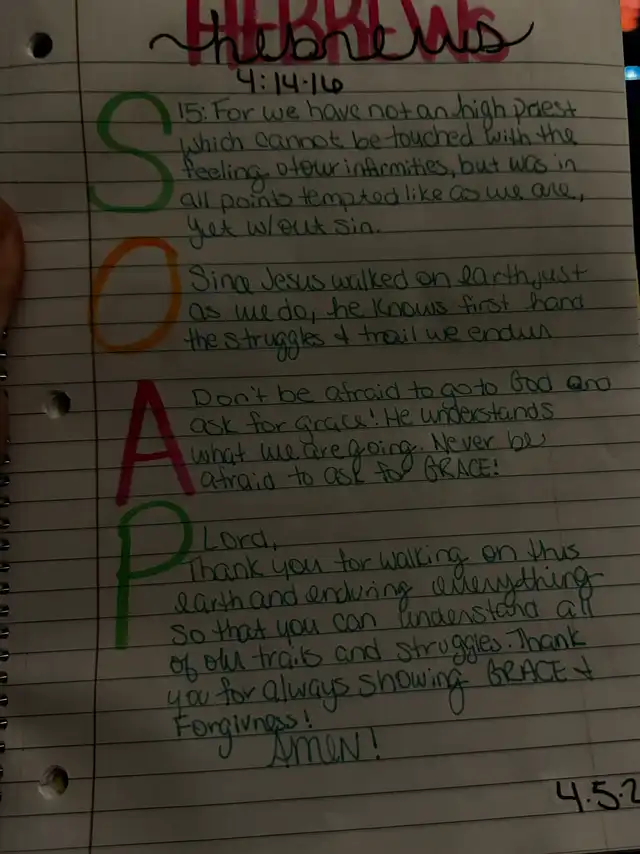 HEBREWS
hebrews
4:14-16
S
15: For we have not an high priest
which cannot be touched with the
feeling of our infirmities, but was in
all points tempted like as we are,
yet w/out sin.
O
Since Jesus walked on earth, just
as we do, he knows first hand
the struggles + trail we endure
A
Don't be afraid to go to God and
ask for grace! He understands
what we are going. Never be
afraid to ask for GRACE!
P
Lord,
Thank you for walking on this
earth and enduring everything
so that you can understand all
of our trails and struggles. Thank
you for always showing GRACE +
Forgivness!
AMEN!
4.5.2